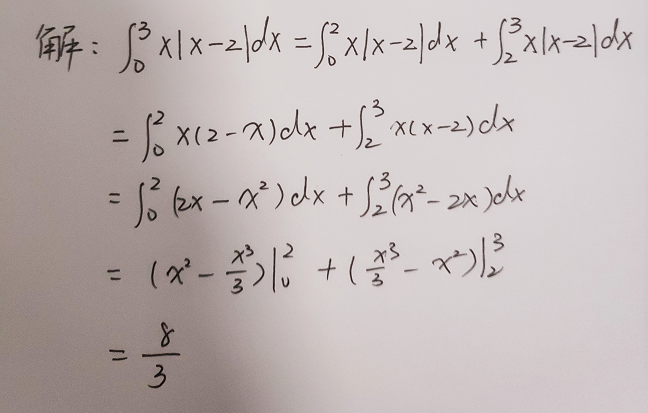 解: ∫₀³ x|x-2|dx = ∫₀² x|x-2|dx + ∫₂³ x|x-2|dx
= ∫₀² x(2-x)dx + ∫₂³ x(x-2)dx
= ∫₀² (2x-x²)dx + ∫₂³ (x²-2x)dx
= (x² - x³/3)|₀² + (x³/3 - x²)|₂³
= 8/3